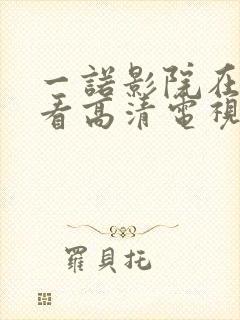 一諾影院在
看高清電視
羅貝托